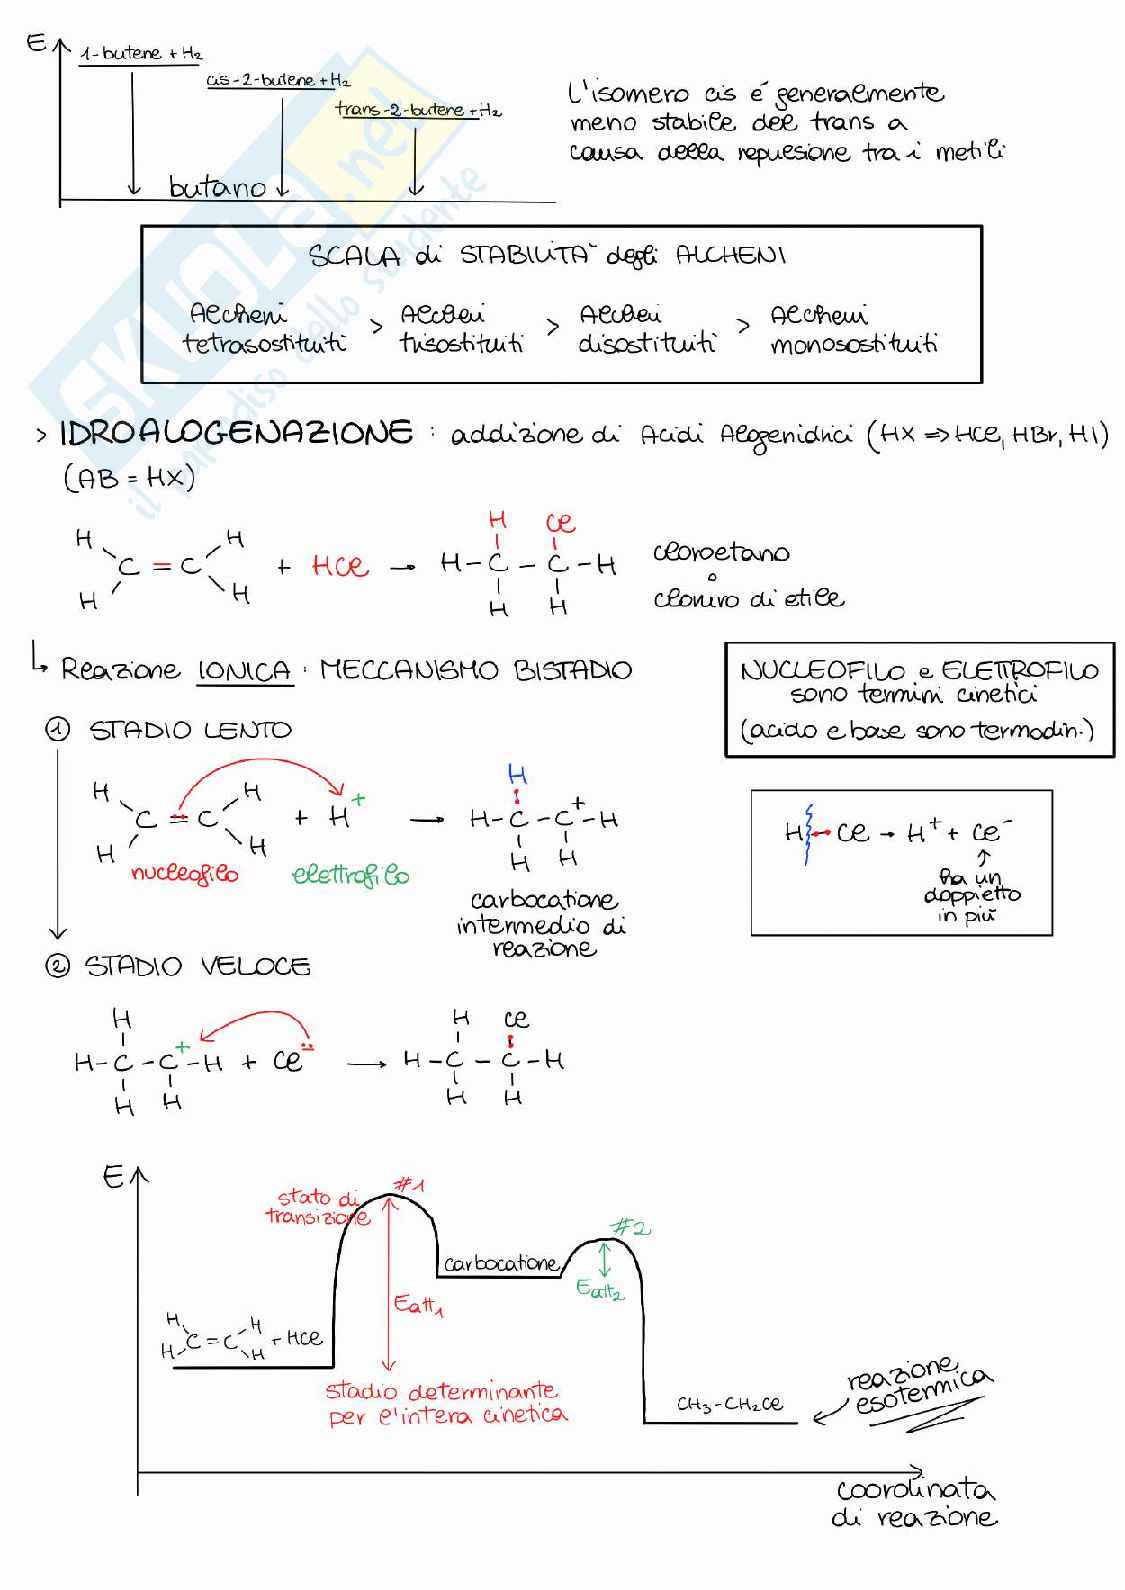 E
1-butene + H₂
cis-2-butene + H₂
trans-2-butene + H₂
butano
L'isomero cis é generalmente
meno stabile del trans a
causa della repulsione tra i metili
SCALA di STABILITA' degli ALCHENI
Alcheni tetrasostituiti > Alcheni trisostituiti > Alcheni disostituiti > Alcheni monosostituiti
> IDROALOGENAZIONE : addizione di Acidi Alogenidrici (HX => HCl, HBr, HI)
(AB = HX)
H H H Cl
C = C + HCl → H - C - C - H
H H H H
cloroetano
o
cloruro di etile
↳ Reazione IONICA : MECCANISMO BISTADIO
NUCLEOFILO e ELETTROFILO
sono termini cinetici
(acido e base sono termodin.)
① STADIO LENTO
H H H
C = C + H⁺ → H - C - C⁺ - H
H H H H
nucleofilo elettrofilo
carbocatione
intermedio di
reazione
H - Cl → H⁺ + Cl⁻
ha un
doppietto
in più
② STADIO VELOCE
H H Cl
H - C - C⁺ - H + Cl⁻ → H - C - C - H
H H H H
E
stato di
transizione
#1
#2
carbocatione
Eatt₁
Eatt₂
H H
C = C + HCl
H H
stadio determinante
per l'intera cinetica
CH₃-CH₂Cl
reazione
esotermica
coordinata
di reazione
SKUOLA.net
il paradiso dello studente